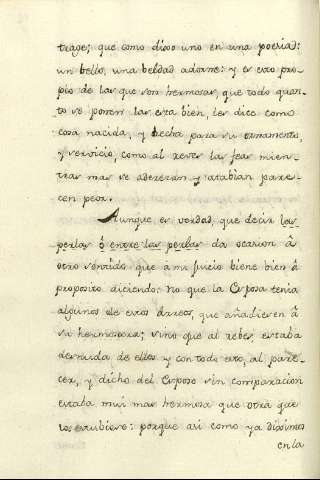 trage; que como dixo uno en una poesia:
un bello, una beldad adorne: y es esto pro-
pio de las que son hermosas, que todo quan-
to se ponen las esta bien, les dice como
cosa nacida, y hecha para su ornamento,
y servicio, como al reves las feas mien-
tras mas se aderezan y atabian pare-
cen peor.
Aunque es verdad, que decir las
perlas ó entre las perlas da ocasion â
otro sentido que a mi juicio biene bien â
proposito diciendo: no que la Esposa tenia
algunos de estos arreos, que añadiesen â
su hermosura; sino que al rebes estaba
desnuda de ellos y con todo esto, al pare-
cer, y dicho del Esposo sin comparacion
estaba mui mas hermosa que otra que
los estubiere: porque asi como ya diximos
en la